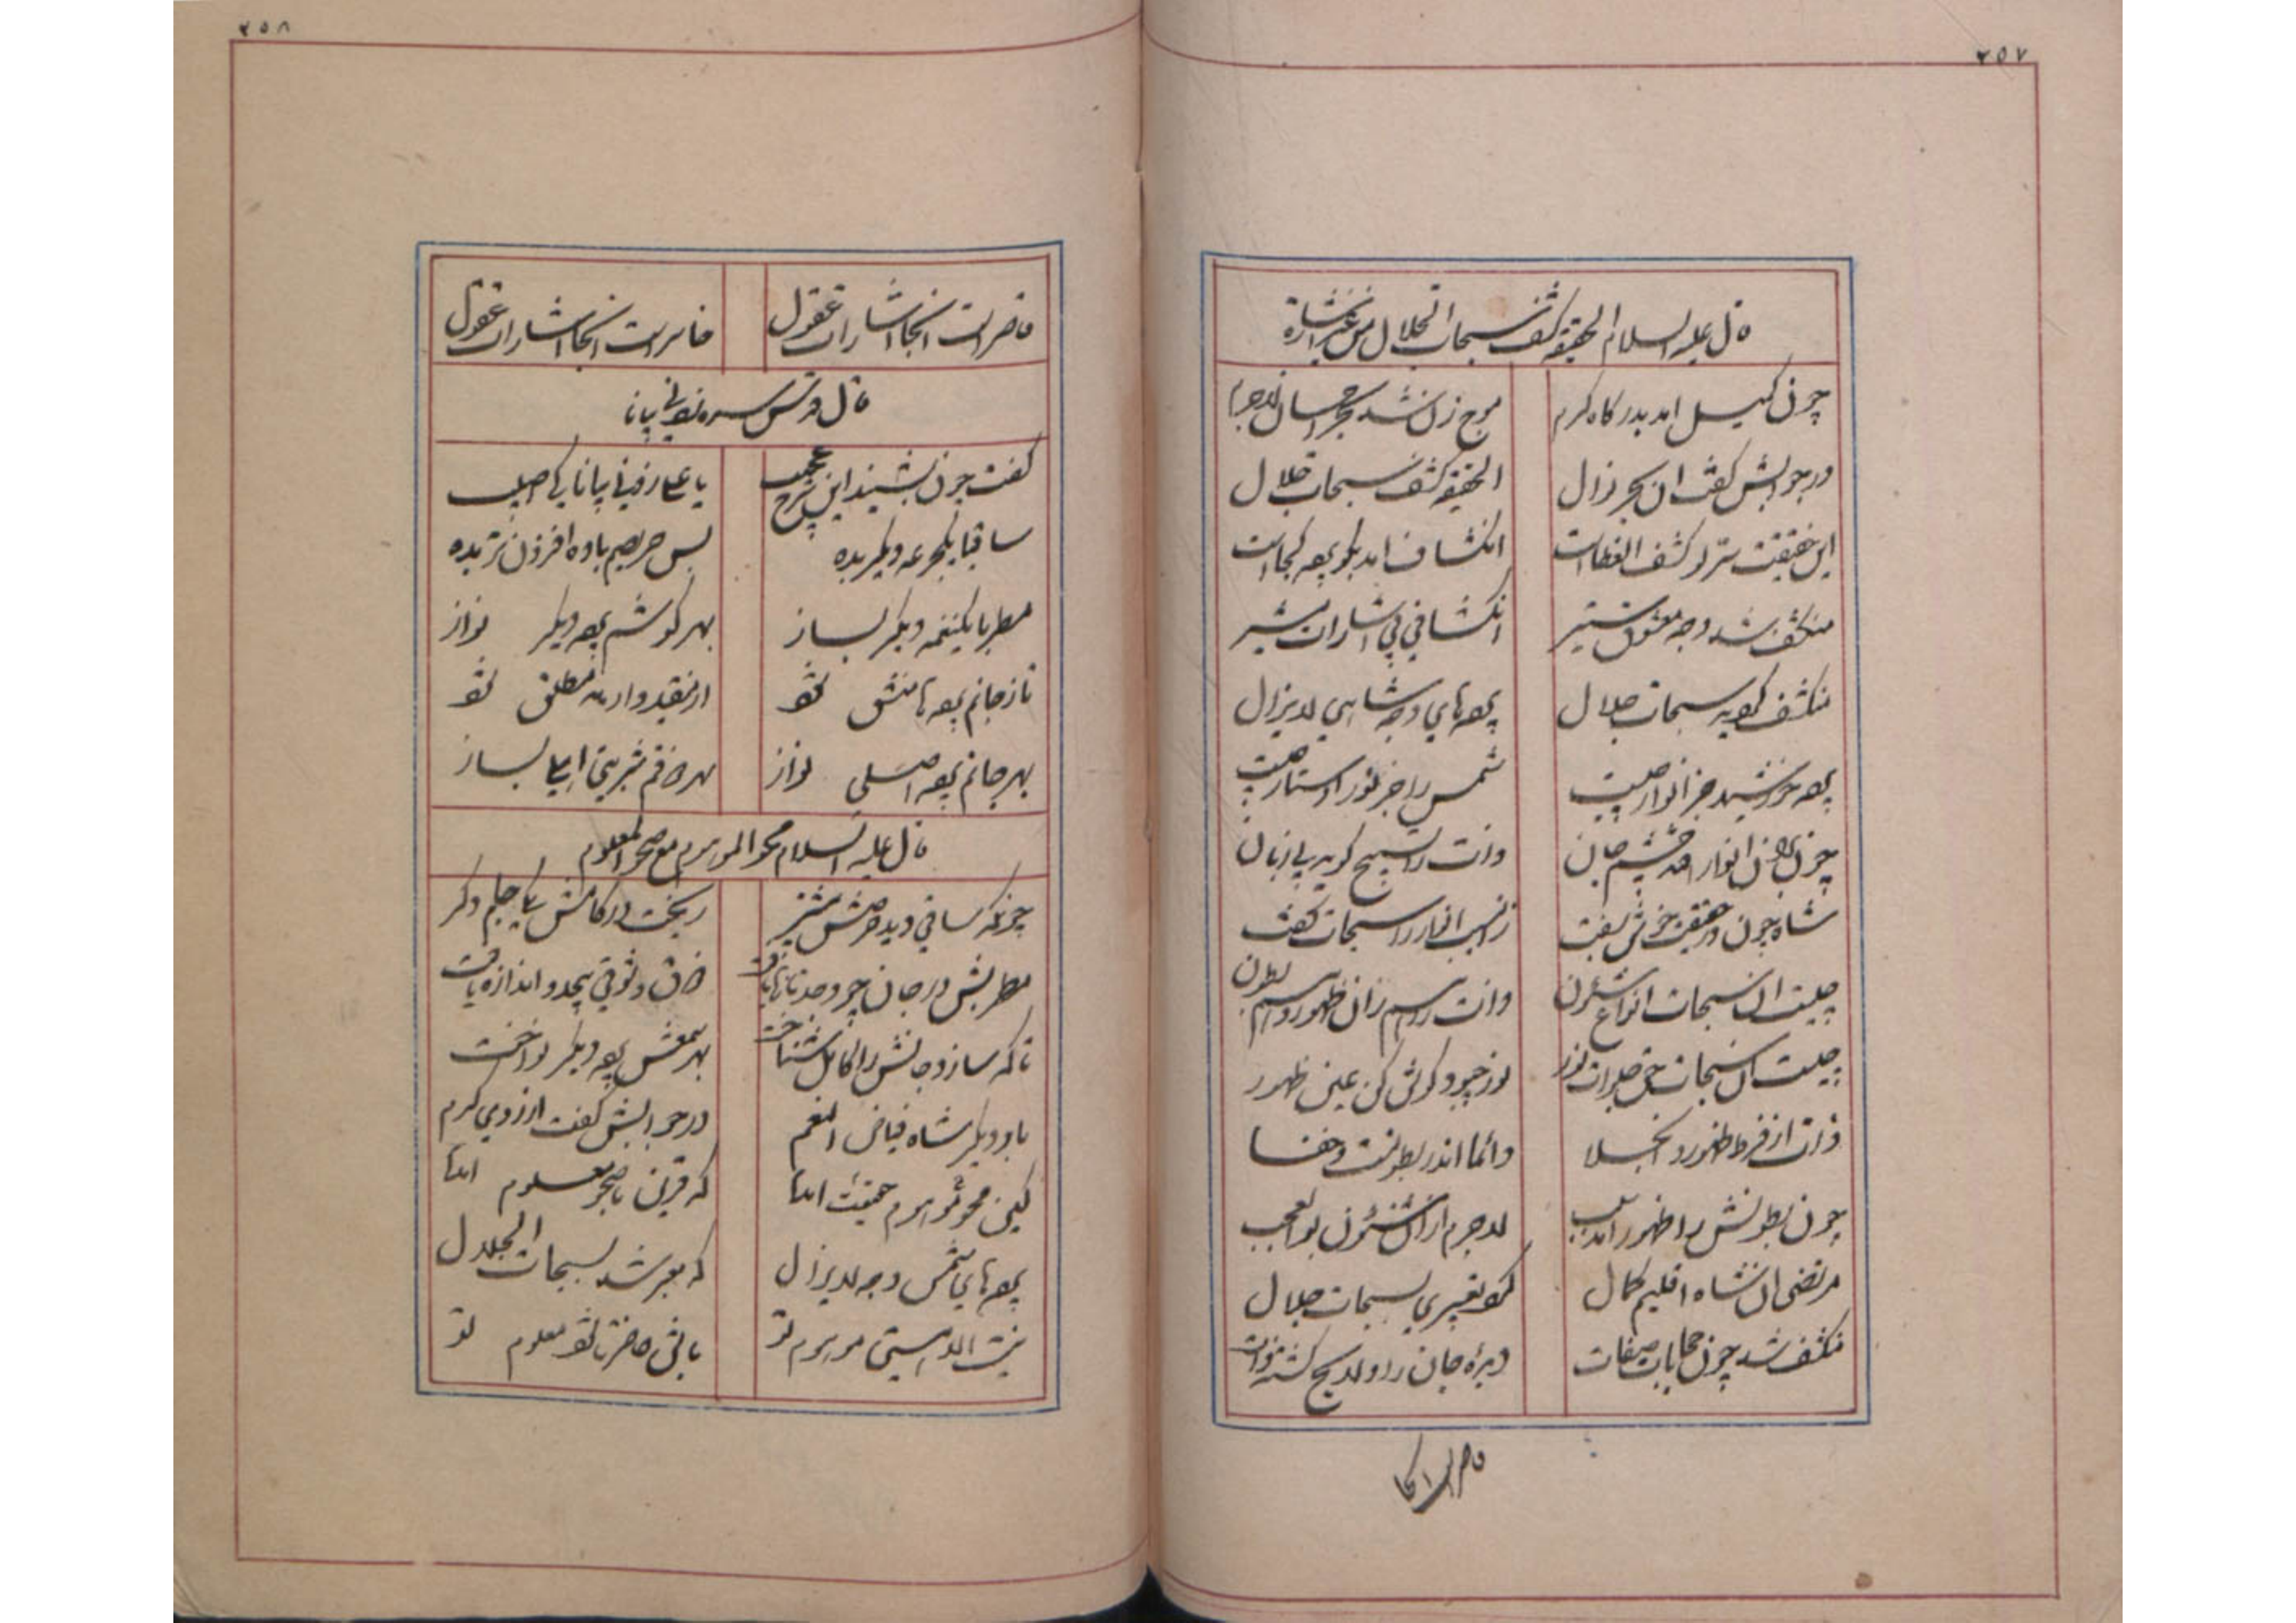 ۲۵۷
قال علیه السلام الحقیقه کشف سبحات الجلال من غیر اشارة
چون کمیل امد بدرکاه کرم موج زن شد بحر احسان لاجرم
در جوابش کفت ان بحر زلال الحقیقه کشف سبحات جلال
این حقیقت سر کشف الغطاست انکشاف امد بکو پرده کجاست
منکشف شد وجه معشوق ستیر انکشافی بی اشارات مشیر
منکشف کو سبحات جلال پرده های وجه شاهی لایزال
پرده خورشید جز انوار چیست شمس را جز نور استار چیست
چون انوار چشم جان ذات را تسبیح کوید بی زبان
شاه چون در حقیقت خوش بسفت زین سبب انوار را سبحات کفت
چیست ان سبحات انواع شئون ذات را رسم زان ظهور و اسم بطون
چیست ان سبحات جلوات نور نور چبود کوش کن عین ظهور
ذات از فرط ظهور و انجلا دائما اندر بطونست و خفا
چون بطونش را ظهور امد سبب لاجرم از ان شئون بوالعجب
مرتضی ان شاه اقلیم کمال کرد تعبیری بسبحات جلال
منکشف شد چون حجابات صفات دیده جان را
قاصر است انجا
۲۵۸
قاصر است انجا اشارات عقول خاسر است انجا اشارات عقول
قال قدس سره زدنی بیانا
کفت چون بشنید این شرح عجیب یا علی زدنی بیانا کی اصیب
ساقیا یکجرعه دیکر بده بس حریصم باده افزون تر بده
مطربا یکنغمه دیکر بساز بهر کوشم پرده دیکر نواز
تا ز جانم پرده ها منشق شود از مقید وارهد مطلق شود
بهر جانم پرده اصلی نواز بهر ذاقم شربتی اعلی بساز
قال علیه السلام محو الموهوم مع صحو المعلوم
چونکه ساقی دید حرصش بیشتر ریخت در کامش یکی جام دکر
مطربش در جان چو وجد تازه یافت ذاق و شوقی بیحد و اندازه یافت
تا که ساز وجانش را کامل شناخت بهر سمعش پرده دیکر نواخت
بار دیکر شاه فیاض النعم در جوابش کفت از روی کرم
کین محو موهوم حقیقت امدا که قرین با صحو معلوم امدا
پرده های شمس وجه لایزال که معبر شد بسبحات الجلال
نیست الا هستی موهوم تو باش حاضر تا شود معلوم تو